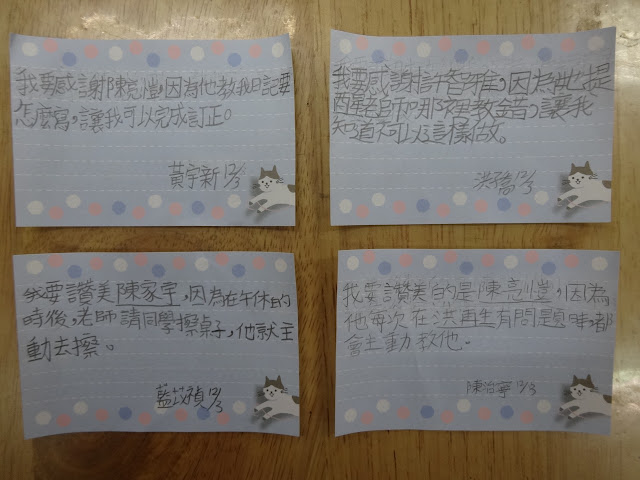 我要感謝陳亮愷,因為他教我日記要
怎麼寫,讓我可以完成訂正。
黃宇新 12/3
我要感謝許智雅,因為她提
醒老師哪裡教錯,讓我
知道不可以這樣做。
洪 12/3
我要讚美陳家宇,因為在午休的
時後,老師請同學擦桌子,他就主
動去擦。
藍苡禎 12/3
我要讚美的是陳亮愷,因為
他每次在洪再生有問題時,都
會主動教他。
陳怡寧 12/3